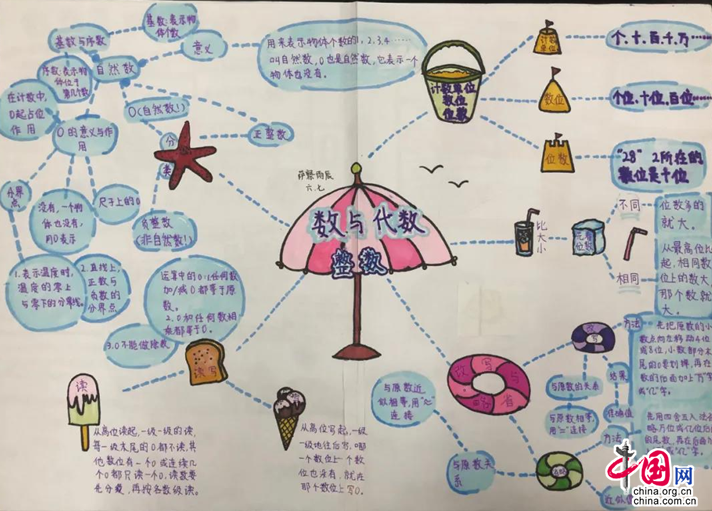 基数与序数
基数:表示物
体个数
意义
自然数
序数:表示物
体位于
第几个数
用来表示物体个数的1、2、3、4……
0叫自然数,0也是自然数,它表示一个
物体也没有。
在计数中,
0起占位
作用
0的意义与作
用
0(自然数!)
分
类
正整数
负整数
(非自然数!)
分界点
没有,一个物
体也没有,
用0表示
尺子上的0
1.表示温度时,
温度的零上
与零下的分界线。
2.直线上,
正数与
负数的分
界点
运算中的0:1.任何数
加/减0都等于原
数。
2.0和任何数相
乘都等于0。
3.0不能做除数
计数单位
数位
位数
计数
单位
个、十、百、千、万……
数位
个位、十位、百位……
位数
"28" 2所在的
数位是十位
六.七
数与代数
整数
比
大
小
不同
位数多的
就大。
相同
从最高位比
起,相同数
位上的数大,
那个数就
大。
读写
读
从高位读起,一级一级的读,
每一级末尾的0都不读,其
他数位有一个0或连续几
个0都只读一个0,读数要
先分级,再按各数级读。
从高位写起,一级
一级地往后写,哪
一个数位上一个数
位也没有,就在
那个数位上写0。
改写与
省略
与原数近
似相等,用"≈"
连接
与原数关
系
与原数的关系
与原数相等,
用"="连接
结果
准确值
方法
先把原数的小
数点向左移动4位
或8位,小数部分末
尾的0要划掉,再在
数的后面加上"万"字
或"亿"字。
方法
先用四舍五入法
略万位或亿位后
的尾数,再在后面
中国网
china.org.cn
china.com.cn